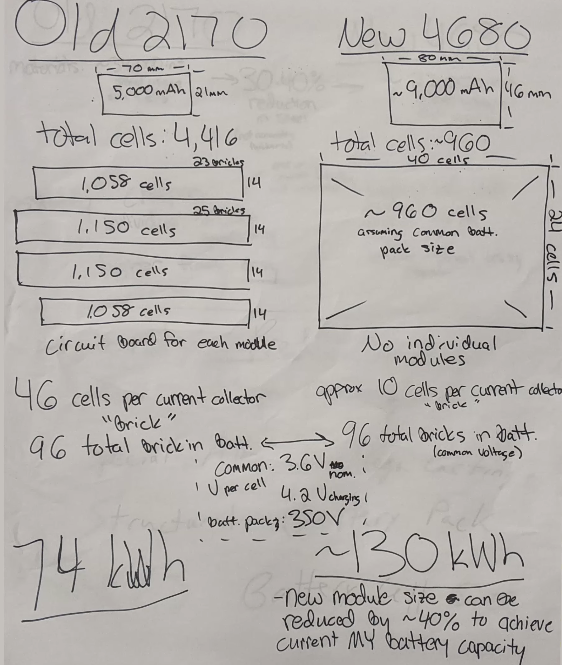 Old 2170
70 mm
5,000 mAh
21mm
total cells: 4,416
23 bricks
1,058 cells
14
25 bricks
1,150 cells
14
1,150 cells
14
1058 cells
14
Circuit board for each module
46 cells per current collector
"brick"
96 total brick in Batt.
New 4680
80mm
~9,000 mAh
46mm
total cells:~960
40 cells
~ 960 cells
assuming common batt.
pack size
24 cells
No individual
modules
approx 10 cells per current collecto
"brick"
96 total bricks in Batt.
(common voltage)
Common: 3.6V nom.
V per cell
4.2 V charging
Batt. pack: 350V
74 kWh
~130kWh
-new module size can be
reduced by ~40% to achieve
current MY battery capacity